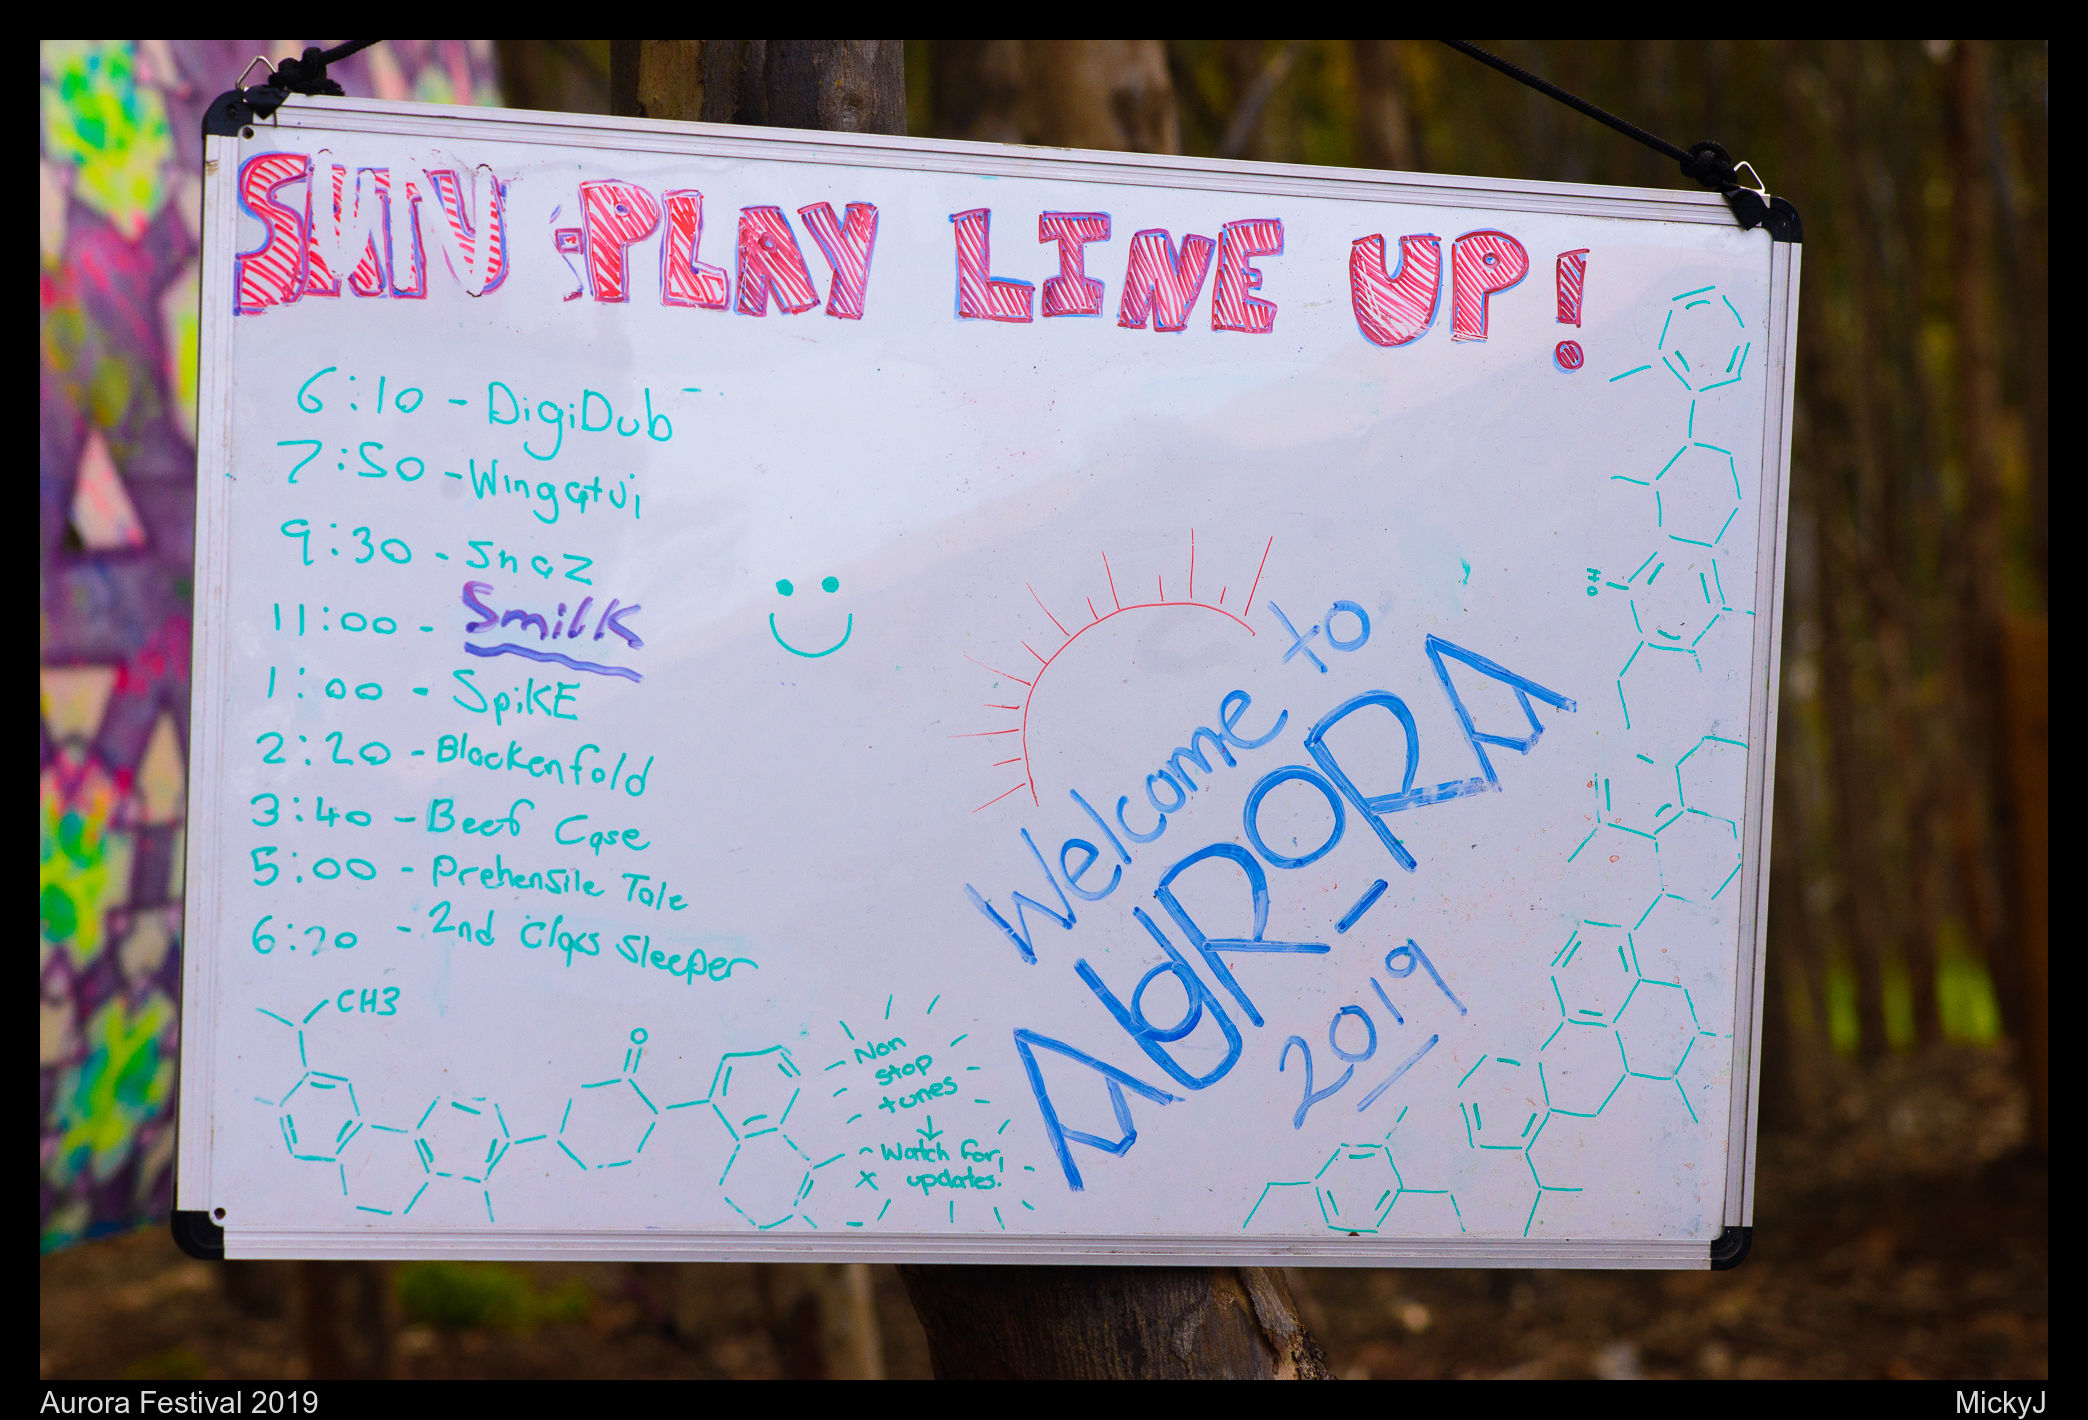 SUN PLAY LINE UP!
6:10 - DigiDub
7:50 - Wingatui
9:30 - Snaz
11:00 - SmilK
1:00 - SpiKE
2:20 - Blackenfold
3:40 - Beef Case
5:00 - Prehensile Tale
6:20 - 2nd Class Sleeper
CH3
O
Non
stop
tunes
↓
Watch for
updates!
Welcome to
AURORA
2019
HO
Aurora Festival 2019
MickyJ